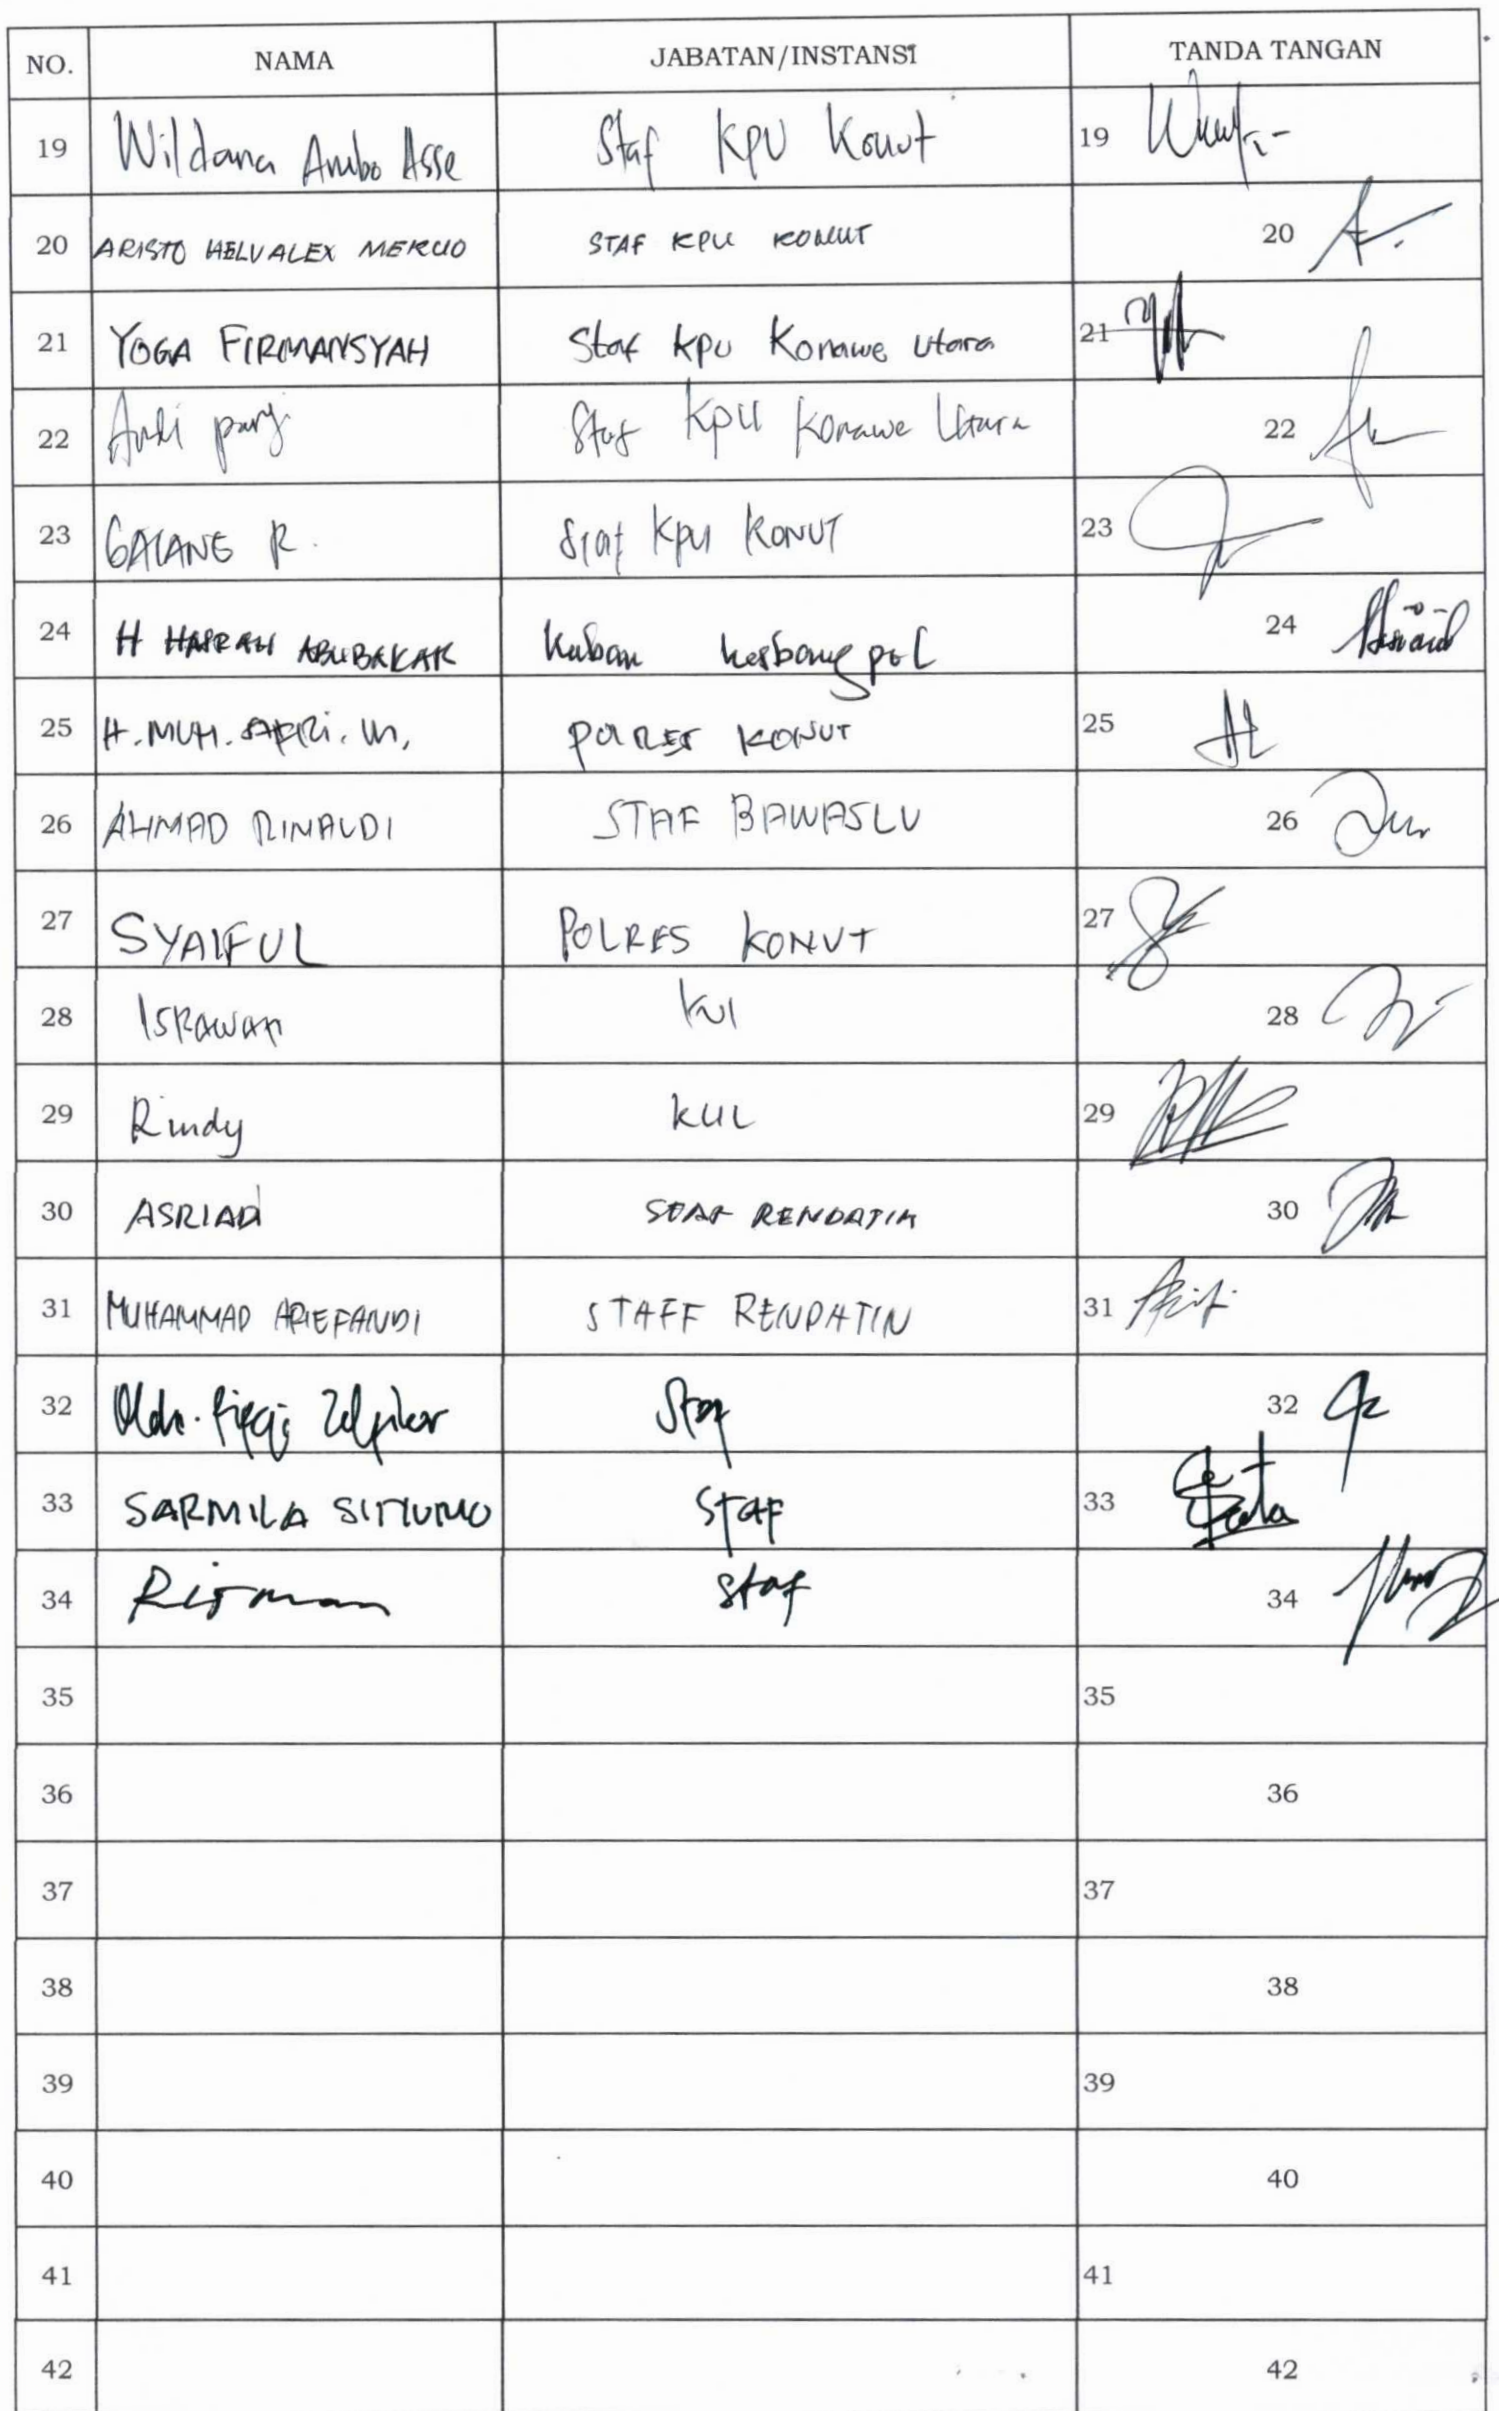 NO. NAMA JABATAN/INSTANSI TANDA TANGAN
19 Wildana Ambo Asse Staf KPU Konut 19
20 ARISTO HELVALEX MEKUO STAF KPU KONUT 20
21 YOGA FIRMANSYAH Staf KPU Konawe Utara 21
22 Andi Staf KPU Konawe Utara 22
23 GALANG R. Staf KPU KONUT 23
24 H ABUBAKAR Kaban kesbang pol 24
25 H. MUH. POLRES KONUT 25
26 AHMAD RINALDI STAF BAWASLU 26
27 SYAIFUL POLRES KONUT 27
28 ISRAWAN KUL 28
29 Rindy KUL 29
30 ASRIADI STAF RENDATIN 30
31 MUHAMMAD ARIEFANDI STAFF RENDATIN 31
32 Staf 32
33 SARMILA STAF 33
34 Risman Staf 34
35 35
36 36
37 37
38 38
39 39
40 40
41 41
42 42